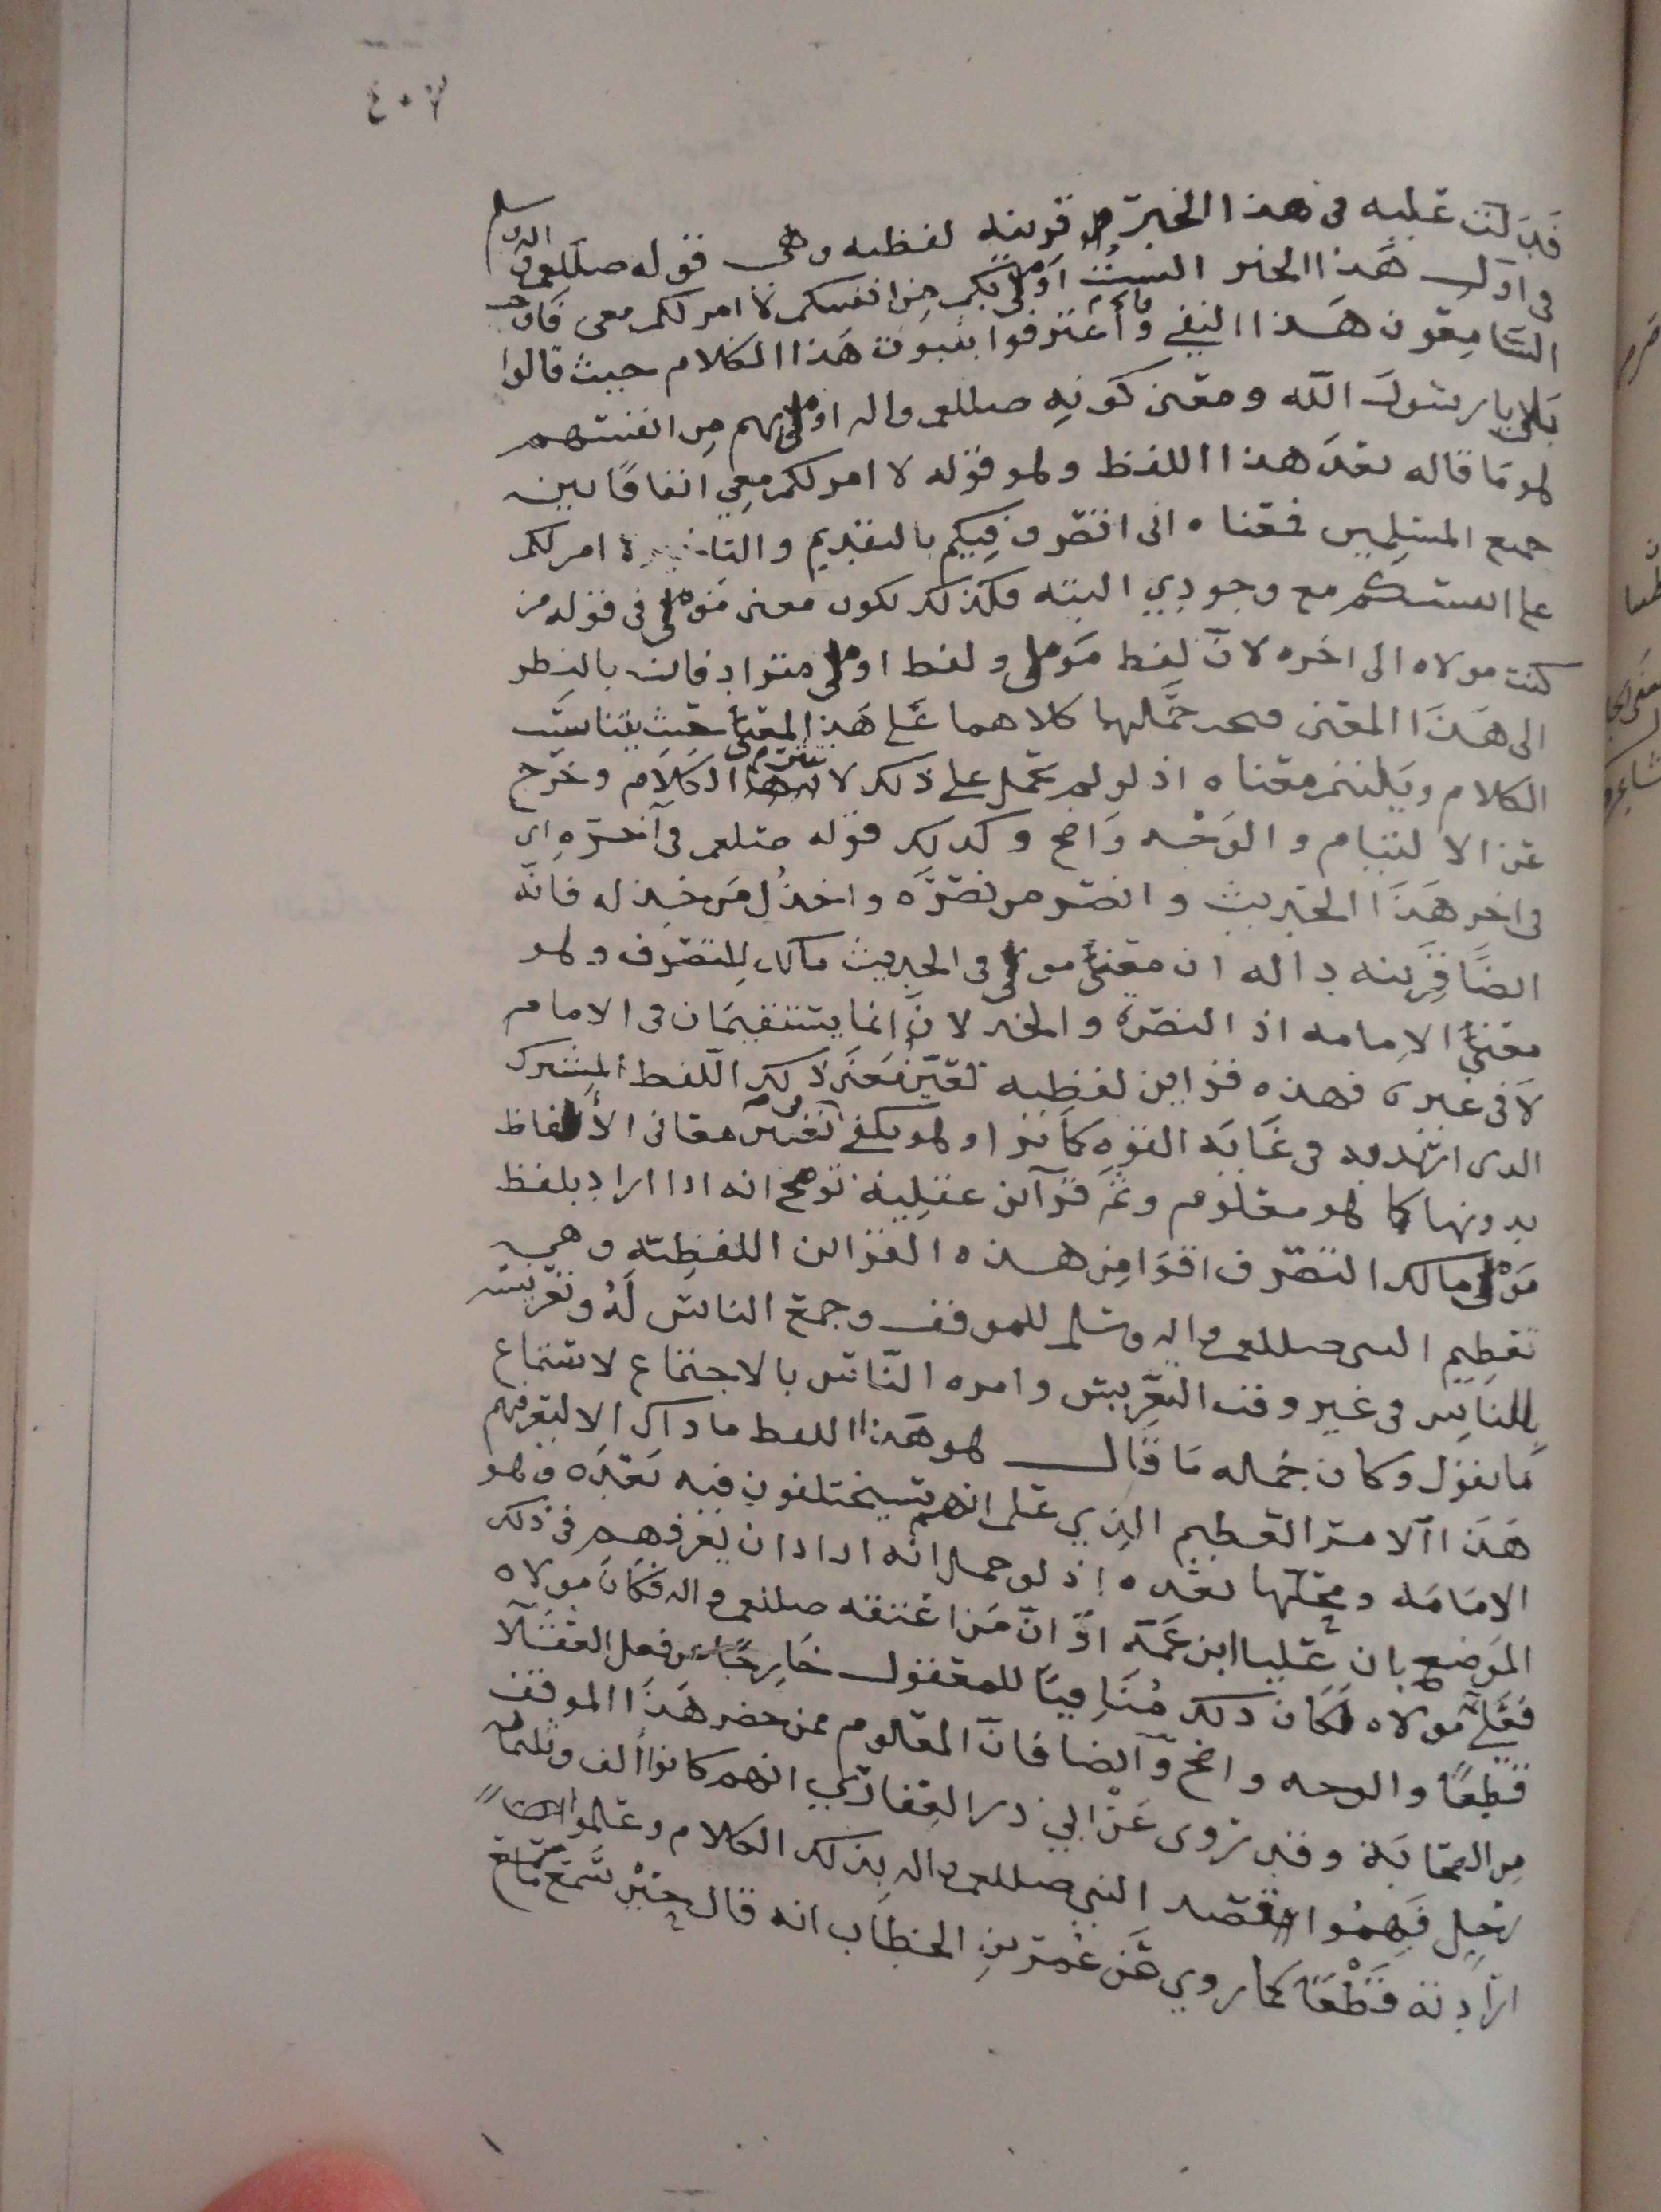 ٤٠٧
قد دلت عليه في هذا الخبر قرينة لفظيه وهي قوله صللعم واله وسلم
في اول هذا الخبر الست اولى بكم من انفسكم لا امر لكم معي فان
السامعون هذا النفي واعترفوا بثبوت هذا الكلام حيث قالوا
بلى يا رسول الله ومعنى كونه صللعم واله اولى بهم من انفسهم
هو ما قاله بعد هذا اللفظ وهو قوله لا امر لكم معي اتفاقا بين
جميع المسلمين فمعناه اني اتصرف فيكم بالتقديم والتاخير لا امر لكم
على انفسكم مع وجودي البته فكذلك يكون معنى مولى في قوله من
كنت مولاه الى اخره لان لفظ مولى ولفظ اولى مترادفان بالنظر
الى هذا المعنى فيجب حملهما كلاهما على هذا المعنى حيث يتناسب
الكلام ويلتئم معناه اذ لو لم يحمل على ذلك لا الكلام وخرج
عن الالتيام والوجه واضح وكذلك قوله صللعم في آخره اي
في اخر هذا الحديث وانصر من نصره واخذل من خذله فانه
ايضا قرينه داله ان معنى مولى في الحديث مالك للتصرف وهو
معنى الامامه اذ النصرة والخذلان انما يستقيمان في الامام
لا في غيره فهذه قراين لفظيه تعين معنى ذلك اللفظ المشترك
الذي اريد به في غاية القوه كما ترا وهو يكفي في تفسير معاني الألفاظ
بدونها كما هو معلوم وثم قرآين عقلية توضح انه اذا اراد بلفظ
مولى مالك التصرف اقوا من هذه القراين اللفظية وهي
تعظيم النبي صللعم واله وسلم للموقف وجمع الناس له وتعريسه
بالناس في غير وقت التعريس وامره الناس بالاجتماع لاستماع
ما يقول وكان جمله ما قال هو هذا اللفظ ما ذاك الا ليعرفهم
هذا الامر العظيم الذي علم انهم سيختلفون فيه بعده وهو
الامامه ومحلها بعده اذ لو حمل انه اراد ان يعرفهم في ذلك
الموضع بان عليا ابن عمه او ان من اعتقه صللعم واله فكان مولاه
فعلي مولاه لكان ذلك منافيا للمعقول خارجا عن فعل العقلا
قطعا والوجه واضح وايضا فان المعلوم ممن حضر هذا الموقف
من الصحابة وقد روى عن ابي ذر الغفاري انهم كانوا ألف وثلثمائة
رجل فهموا قصد النبي صللعم واله بذلك الكلام وعلموا
ارادته قطعا كما روي عن عمر بن الخطاب انه قال حين سمع